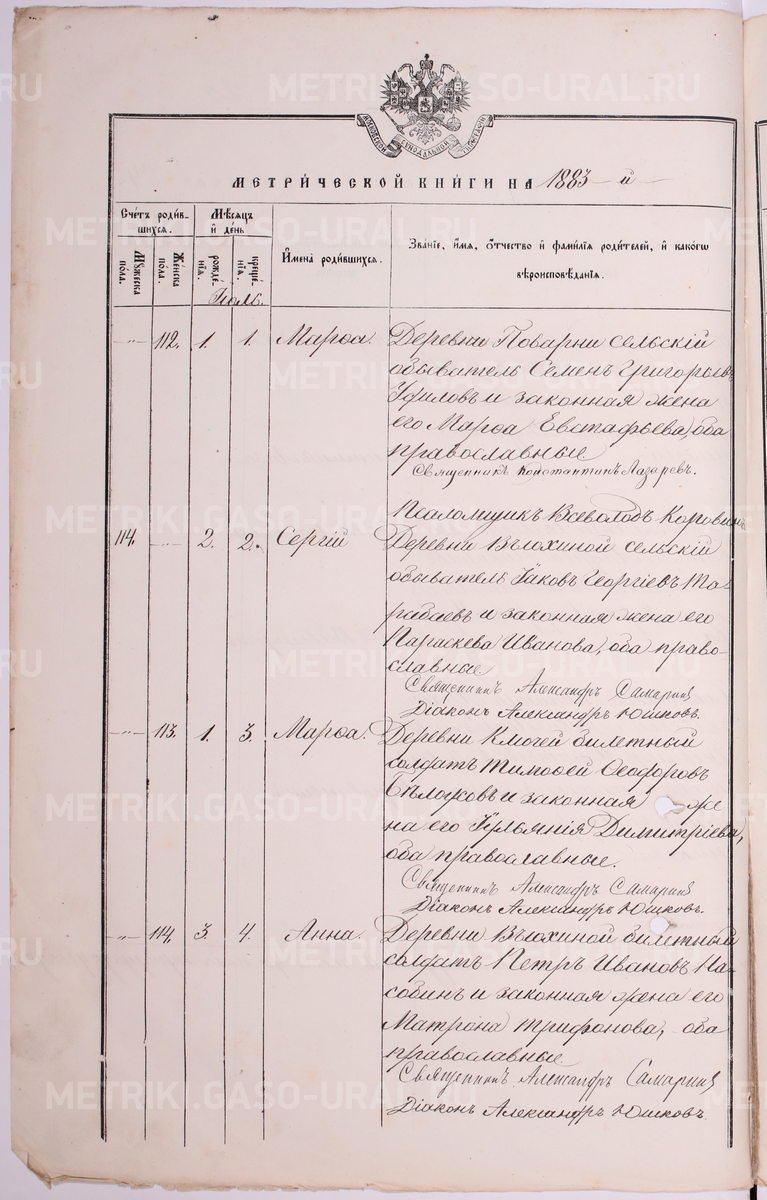 МЕТРИ́ЧЕСКОЙ КНИ́ГИ НА 1883-й
Счётъ роди́в-
шихся.
Мѣсяцъ
и́ де́нь
Му́жеска
по́ла.
Же́нска
по́ла.
рожде́-
нїѧ.
креще́-
нїѧ.
И́мена роди́вшихся.
Зва́нїе, и́мя, о́тчество и́ фами́лїя роди́телей, и́ како́гѡ
вѣроисповѣ́данїя.
Іюль.
—"— 112. 1. 1. Марѳа. Деревни Поварни сельскій
обыватель Семенъ Григорьевъ
и законная жена
его Марѳа Евстафьева, оба
православные
Священникъ Константинъ Лазаревъ.
Псаломщикъ Всеволодъ Коровинъ
114. —"— 2. 2. Сергій Деревни Вьюхиной сельскій
обыватель Іаковъ Георгіевъ Та-
рабаевъ и законная жена его
Параскева Иванова, оба право-
славные
Священникъ Александръ Самаринъ
Діаконъ Александръ Юшковъ.
—"— 113. 1. 3. Марѳа. Деревни Ключей билетный
солдатъ Тимоѳей Ѳеодоровъ
и законная же-
на его Іульянія Димитріева,
оба православные.
Священникъ Александръ Самаринъ
Діаконъ Александръ Юшковъ.
—"— 114. 3. 4. Анна. Деревни Вьюхиной билетный
солдатъ Петръ Ивановъ Па-
собинъ и законная жена его
Матрона Трифонова, оба
православные
Священникъ Александръ Самаринъ
Діаконъ Александръ Юшковъ.
METRIKI.GASO-URAL.RU